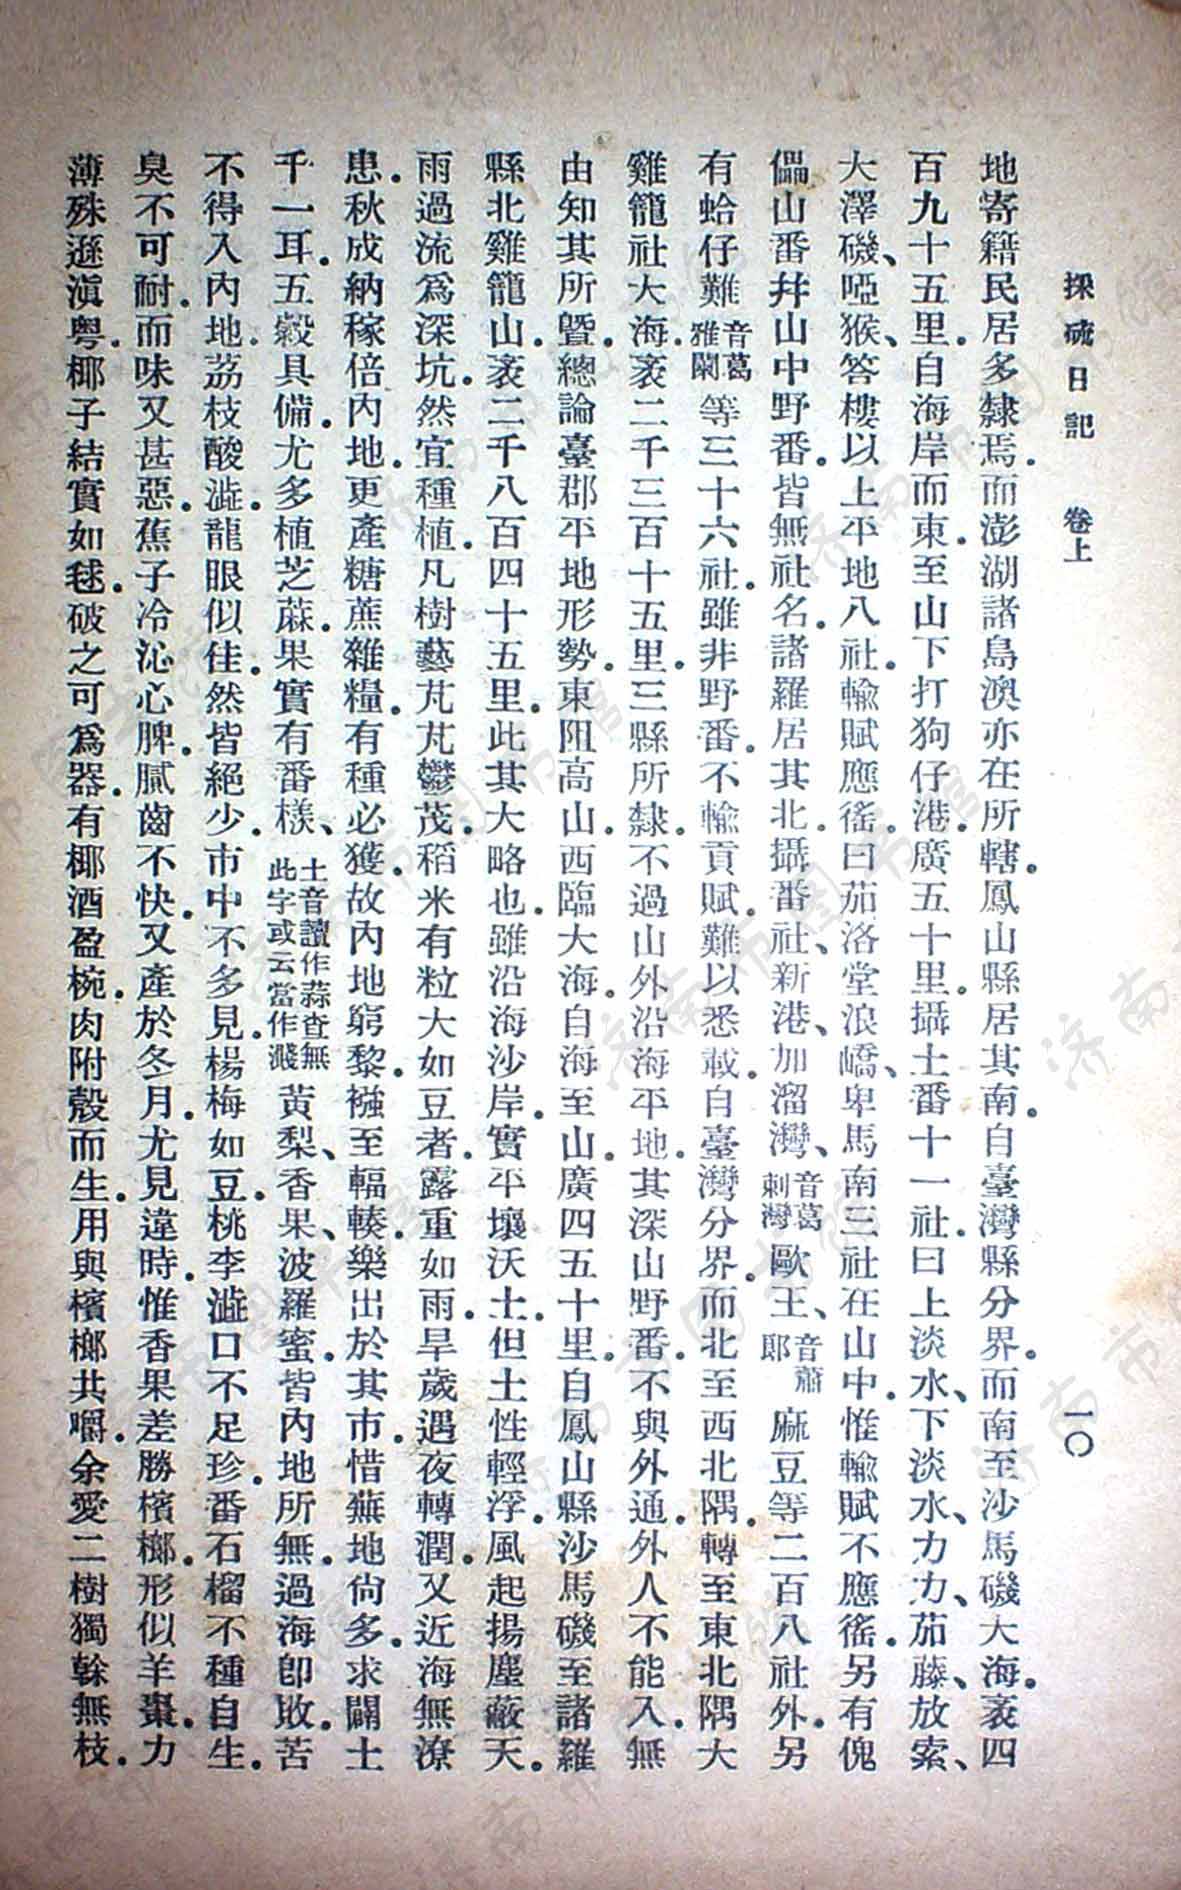 採硫日記　卷上　一〇
地寄籍民居多隸焉.而澎湖諸島澳亦在所轄。鳳山縣居其南。自臺灣縣分界。而南至沙馬磯大海。袤四
百九十五里。自海岸而東。至山下打狗仔港。廣五十里。攝土番十一社。曰上淡水、下淡水、力力、茄藤、放索、
大澤磯、啞猴、答樓以上平地八社。輸賦應徭。曰茄洛堂浪嶠、卑馬南三社在山中。惟輸賦不應徭。另有傀
儡山番幷山中野番。皆無社名。諸羅居其北。攝番社、新港、加溜灣、音葛剌灣歐王、音蕭郎麻豆等二百八社外。另
有蛤仔難音葛雅闌等三十六社。雖非野番。不輸貢賦。難以悉載。自臺灣分界。而北至西北隅。轉至東北隅大
雞籠社大海。袤二千三百十五里。三縣所隸。不過山外沿海平地。其深山野番。不與外通。外人不能入。無
由知其所。曁總論臺郡平地形勢。東阻高山。西臨大海。自海至山。廣四五十里。自鳳山縣沙馬磯至諸羅
縣北雞籠山。袤二千八百四十五里。此其大略也。雖沿海沙岸。實平壤沃土。但土性輕浮。風起揚塵蔽天。
雨過流爲深坑。然宜種植。凡樹藝芃芃鬱茂。稻米有粒大如豆者。露重如雨。旱歲遇夜轉潤。又近海無潦
患。秋成納稼倍內地。更產糖蔗雜糧。有種必獲。故內地窮黎。襁至輻輳。樂出於其市。惜蕪地尙多。求闢土
千一耳。五穀具備。尤多植芝蔴。果實有番檨、土音讀作蒜查無此字或云當作濺黃梨、香果、波羅蜜。皆內地所無。過海卽敗。苦
不得入內地。荔枝酸澁。龍眼似佳。然皆絕少。市中不多見。楊梅如豆。桃李澁口不足珍。番石榴不種自生。
臭不可耐。而味又甚惡。蕉子冷沁心脾。膩齒不快。又產於冬月。尤見違時。惟香果差勝檳榔。形似羊棗。力
薄殊遜滇粤。椰子結實如毬。破之可爲器。有椰酒盈椀。肉附殼而生。用與檳榔共嚼。余愛二樹獨榦無枝。